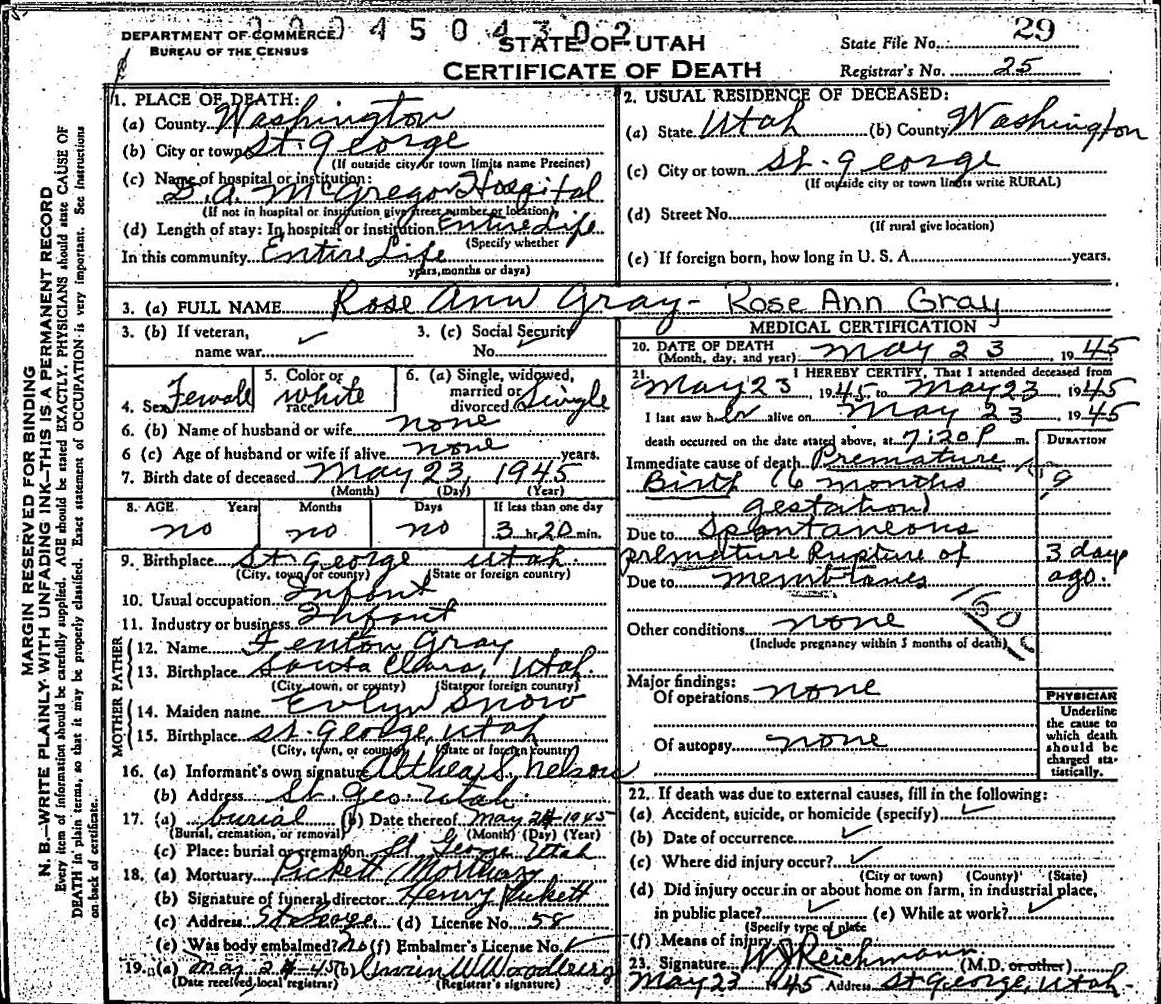 0 0 4 5 0 4 3 0 2
DEPARTMENT OF COMMERCE
BUREAU OF THE CENSUS
STATE OF UTAH
CERTIFICATE OF DEATH
State File No. 29
Registrar's No. 25
MARGIN RESERVED FOR BINDING
N. B.—WRITE PLAINLY WITH UNFADING INK—THIS IS A PERMANENT RECORD
Every item of information should be carefully supplied. AGE should be stated EXACTLY. PHYSICIANS should state CAUSE OF
DEATH in plain terms, so that it may be properly classified. Exact statement of OCCUPATION is very important. See instructions
on back of certificate.
1. PLACE OF DEATH:
(a) County Washington
(b) City or town St. George
(If outside city or town limits name Precinct)
(c) Name of hospital or institution:
D. A. McGregor Hospital
(If not in hospital or institution give street number or location)
(d) Length of stay: In hospital or institution Entire Life
(Specify whether
In this community Entire Life
years, months or days)
2. USUAL RESIDENCE OF DECEASED:
(a) State Utah (b) County Washington
(c) City or town St. George
(If outside city or town limits write RURAL)
(d) Street No.
(If rural give location)
(e) If foreign born, how long in U. S. A. years.
3. (a) FULL NAME Rose Ann Gray - Rose Ann Gray
3. (b) If veteran,
name war ✓
3. (c) Social Security
No. ✓
4. Sex Female
5. Color or
race white
6. (a) Single, widowed,
married or
divorced Single
6. (b) Name of husband or wife none
6 (c) Age of husband or wife if alive none years.
7. Birth date of deceased May 23, 1945
(Month) (Day) (Year)
8. AGE Years Months Days If less than one day
no no no 3 hr. 20 min.
9. Birthplace St. George Utah.
(City, town, or county) (State or foreign country)
10. Usual occupation Infant
11. Industry or business Infant
FATHER
12. Name Fenton Gray
13. Birthplace Santa Clara, Utah.
(City, town, or county) (State or foreign country)
MOTHER
14. Maiden name Evlyn Snow
15. Birthplace St. George, Utah
(City, town, or county) (State or foreign country)
16. (a) Informant's own signature Althea S. Nelson
(b) Address St. Geo. Utah.
17. (a) burial (b) Date thereof May 24 1945
(Burial, cremation, or removal) (Month) (Day) (Year)
(c) Place: burial or cremation St George Utah
18. (a) Mortuary Pickett Mortuary
(b) Signature of funeral director Henry Pickett
(c) Address St George (d) License No. 58
(e) Was body embalmed? No (f) Embalmer's License No. ✓
19. (a) May 24-45 (b) W Woodbury
(Date received local registrar) (Registrar's signature)
MEDICAL CERTIFICATION
20. DATE OF DEATH
(Month, day, and year) May 23, 1945
21. I HEREBY CERTIFY, That I attended deceased from
May 23, 1945, to May 23 1945
I last saw her alive on May 23 1945
death occurred on the date stated above, at 7:20 P. m.
DURATION
Immediate cause of death Premature
Birth (6 months
gestation)
Due to Spontaneous
premature Rupture of 3 days
Due to membranes ago.
Other conditions none
(Include pregnancy within 3 months of death)
Major findings:
Of operations none
Of autopsy none
PHYSICIAN
Underline
the cause to
which death
should be
charged sta-
tistically.
22. If death was due to external causes, fill in the following:
(a) Accident, suicide, or homicide (specify) ✓
(b) Date of occurrence ✓
(c) Where did injury occur? ✓
(City or town) (County) (State)
(d) Did injury occur in or about home on farm, in industrial place,
in public place? ✓ (e) While at work? ✓
(Specify type of place
(f) Means of injury
23. Signature W J Reichmann (M.D. or other)
May 23 1945 Address St George, Utah